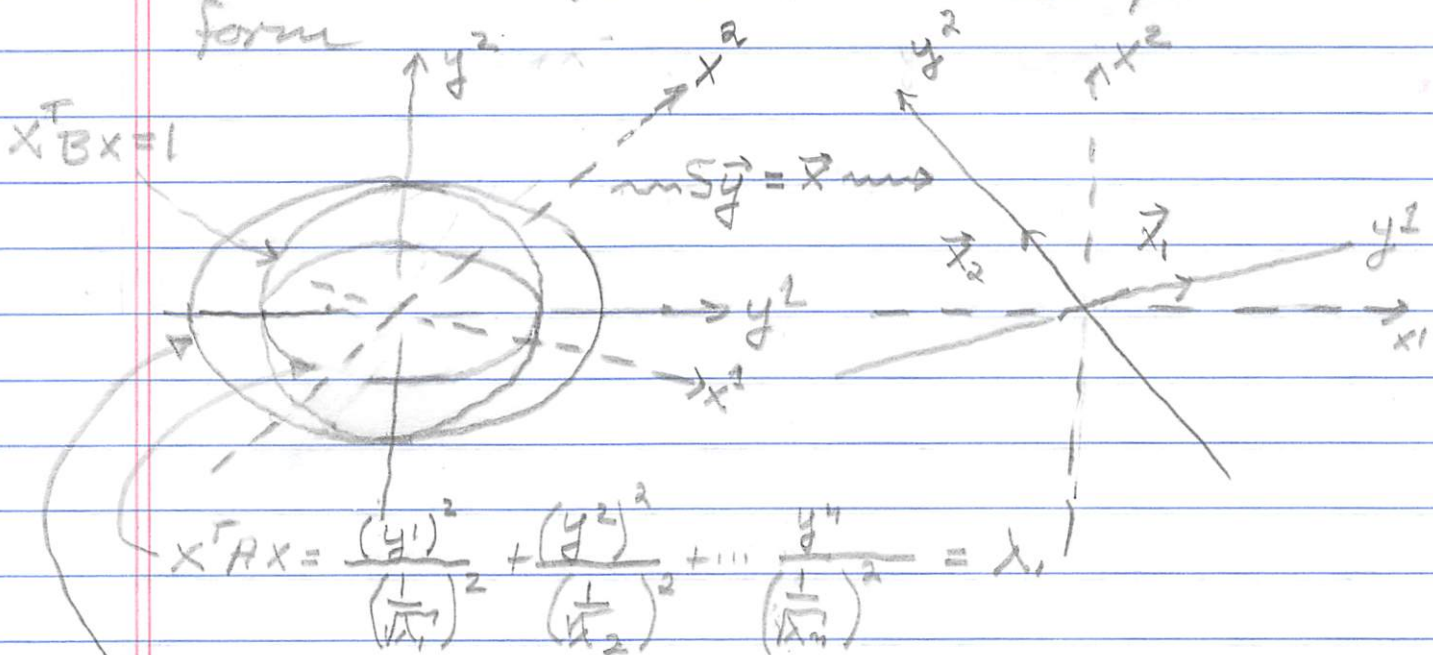 form
y² x² y² x²
xᵀBx=1
Sy⃗ = x⃗
x⃗₂ x⃗₁ y¹
y¹ x¹
x¹
xᵀAx = (y¹)²/(1/√λ₁)² + (y²)²/(1/√λ₂)² + ... yⁿ/(1/√λₙ)² = λ₁